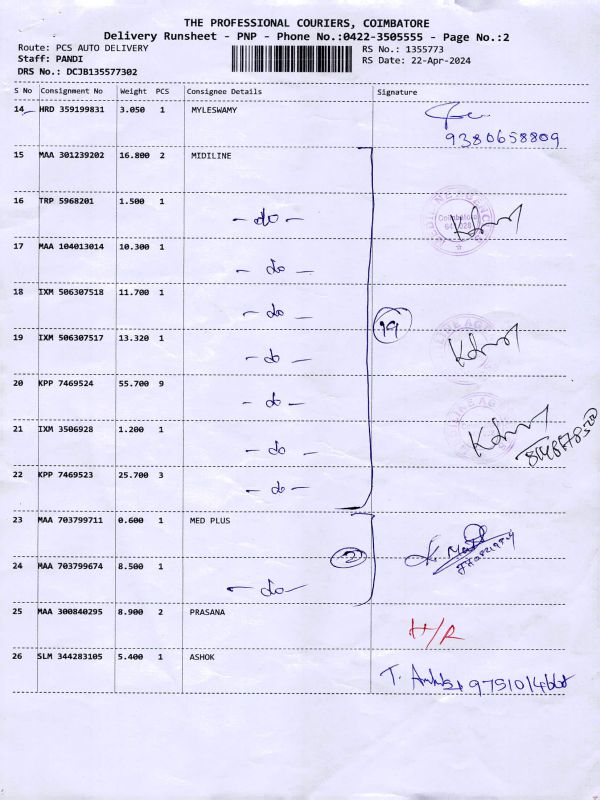 THE PROFESSIONAL COURIERS, COIMBATORE
Delivery Runsheet - PNP - Phone No.:0422-3505555 - Page No.:2
Route: PCS AUTO DELIVERY RS No.: 1355773
Staff: PANDI RS Date: 22-Apr-2024
DRS No.: DCJB135577302
S No Consignment No Weight PCS Consignee Details Signature
14 HRD 359199831 3.050 1 MYLESWAMY
9380658809
15 MAA 301239202 16.800 2 MIDILINE
16 TRP 5968201 1.500 1
- do -
Coimbatore
17 MAA 104013014 10.300 1
- do -
18 IXM 506307518 11.700 1
- do -
19
19 IXM 506307517 13.320 1
- do -
20 KPP 7469524 55.700 9
- do -
21 IXM 3506928 1.200 1
- do -
22 KPP 7469523 25.700 3
- do -
23 MAA 703799711 0.600 1 MED PLUS
2
24 MAA 703799674 8.500 1
- do -
25 MAA 300840295 8.900 2 PRASANA
H/R
26 SLM 344283105 5.400 1 ASHOK
T.